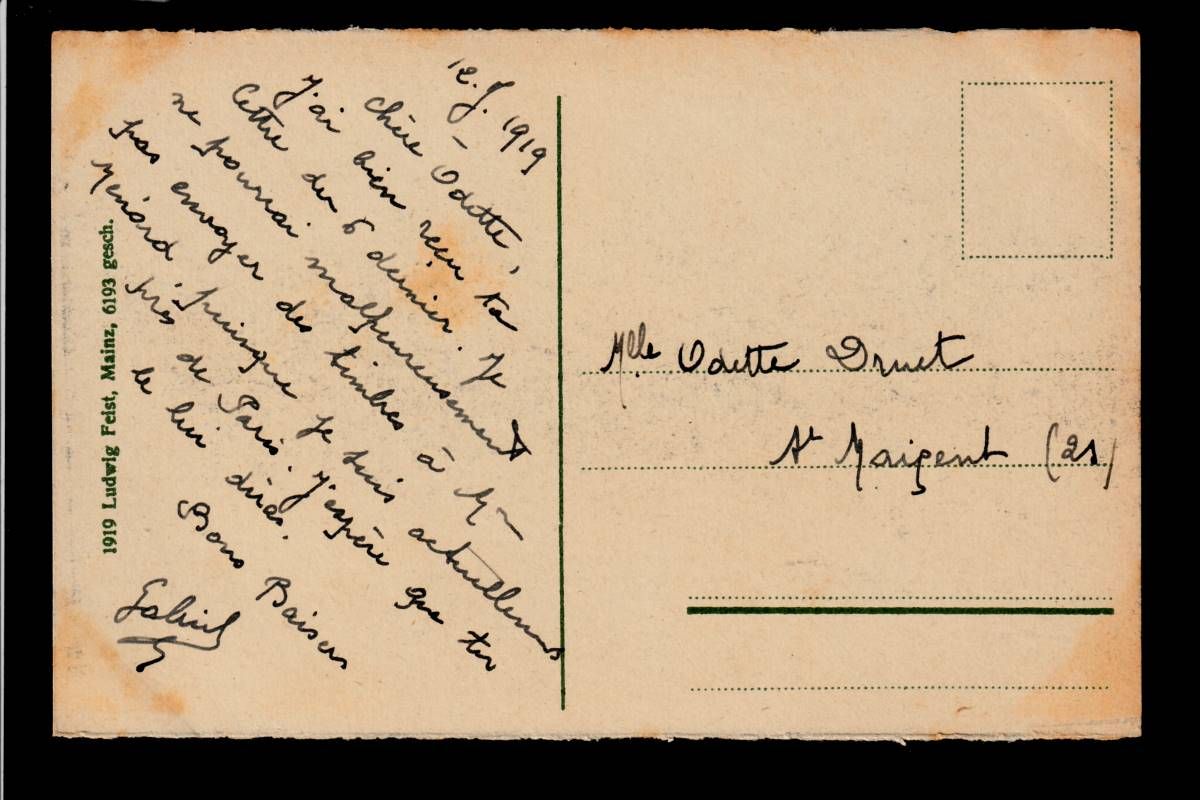 12.J. 1919
chère Odette,
J'ai bien reçu ta
lettre du 6 dernier. Je
ne pourrai malheureusement
pas envoyer des timbres à Mr
Menard puisque je suis actuellement
près de Paris. J'espère que tu
le lui diras.
Bons Baisers
Gabriel
1919 Ludwig Feist, Mainz, 6193 gesch.
Mlle Odette Druet
St Maixent (2S)